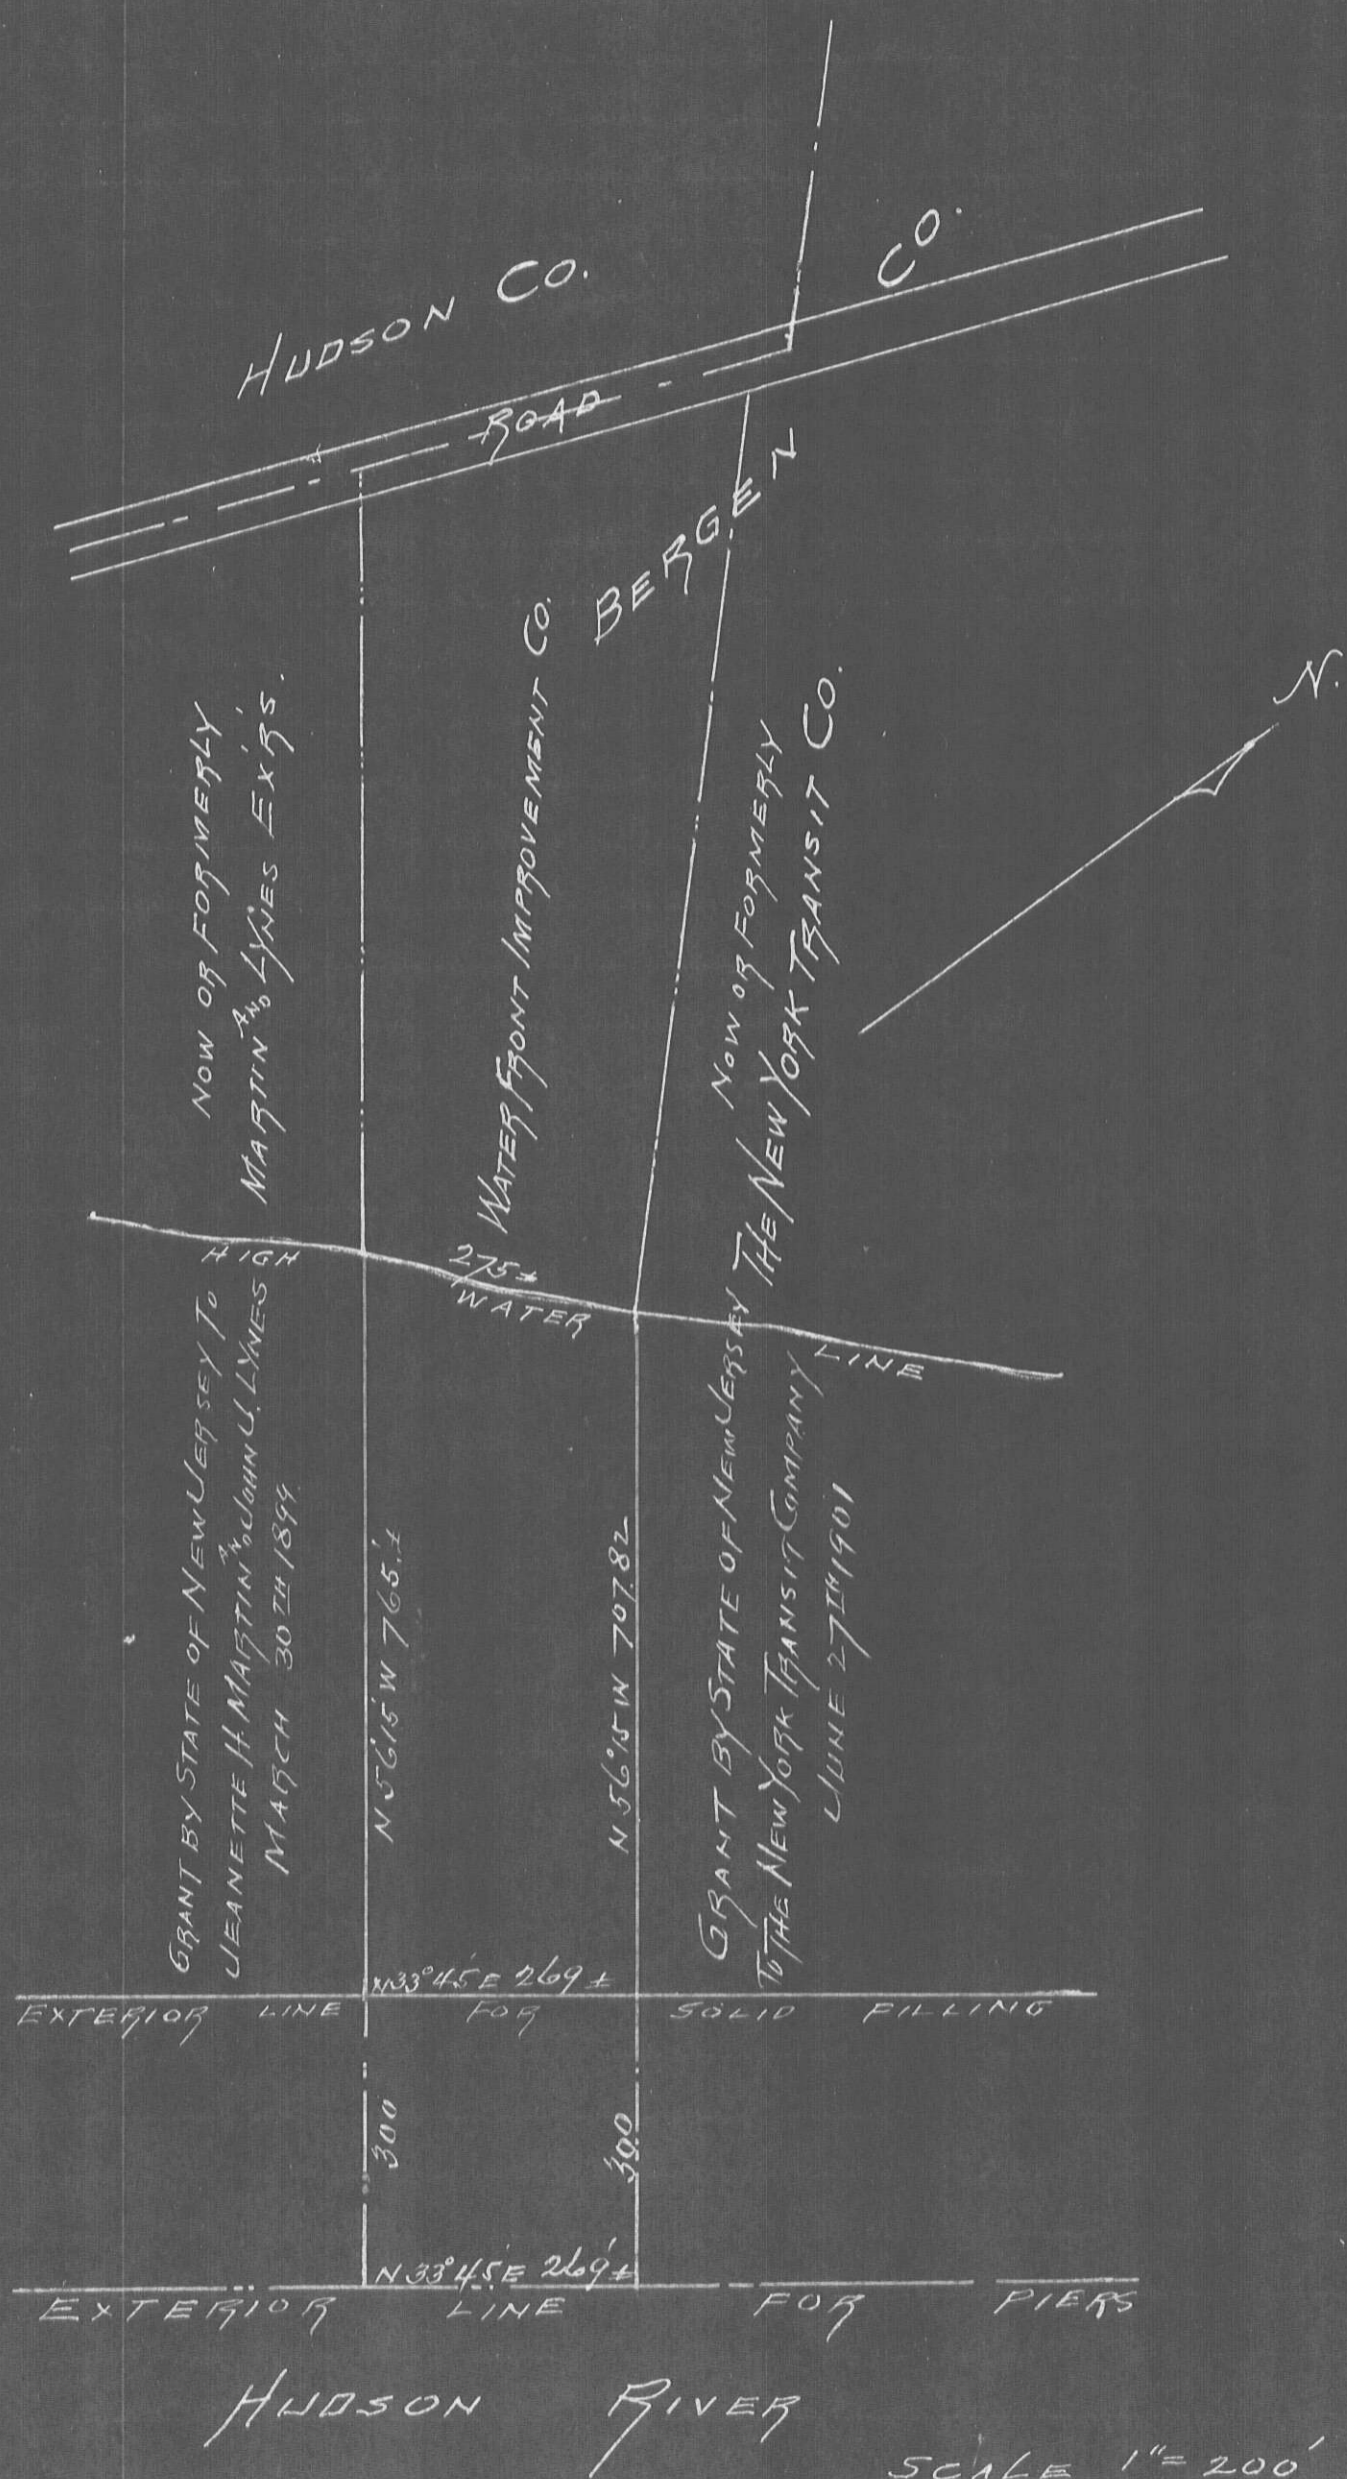 HUDSON CO.
CO.
ROAD
BERGEN
N.
NOW OR FORMERLY
MARTIN AND LYNES EX'R'S.
WATER FRONT IMPROVEMENT CO.
NOW OR FORMERLY
THE NEW YORK TRANSIT CO.
HIGH
275±
WATER
LINE
GRANT BY STATE OF NEW JERSEY TO
JEANETTE H. MARTIN AND JOHN J. LYNES
MARCH 30TH 1899
N 56°15' W 765.'±
N 56°15 W 707.82
GRANT BY STATE OF NEW JERSEY
TO THE NEW YORK TRANSIT COMPANY
JUNE 27TH 1901
N33°45'E 269±
EXTERIOR LINE FOR SOLID FILLING
300
300
N33°45'E 269'±
EXTERIOR LINE FOR PIERS
HUDSON RIVER
SCALE 1"=200'